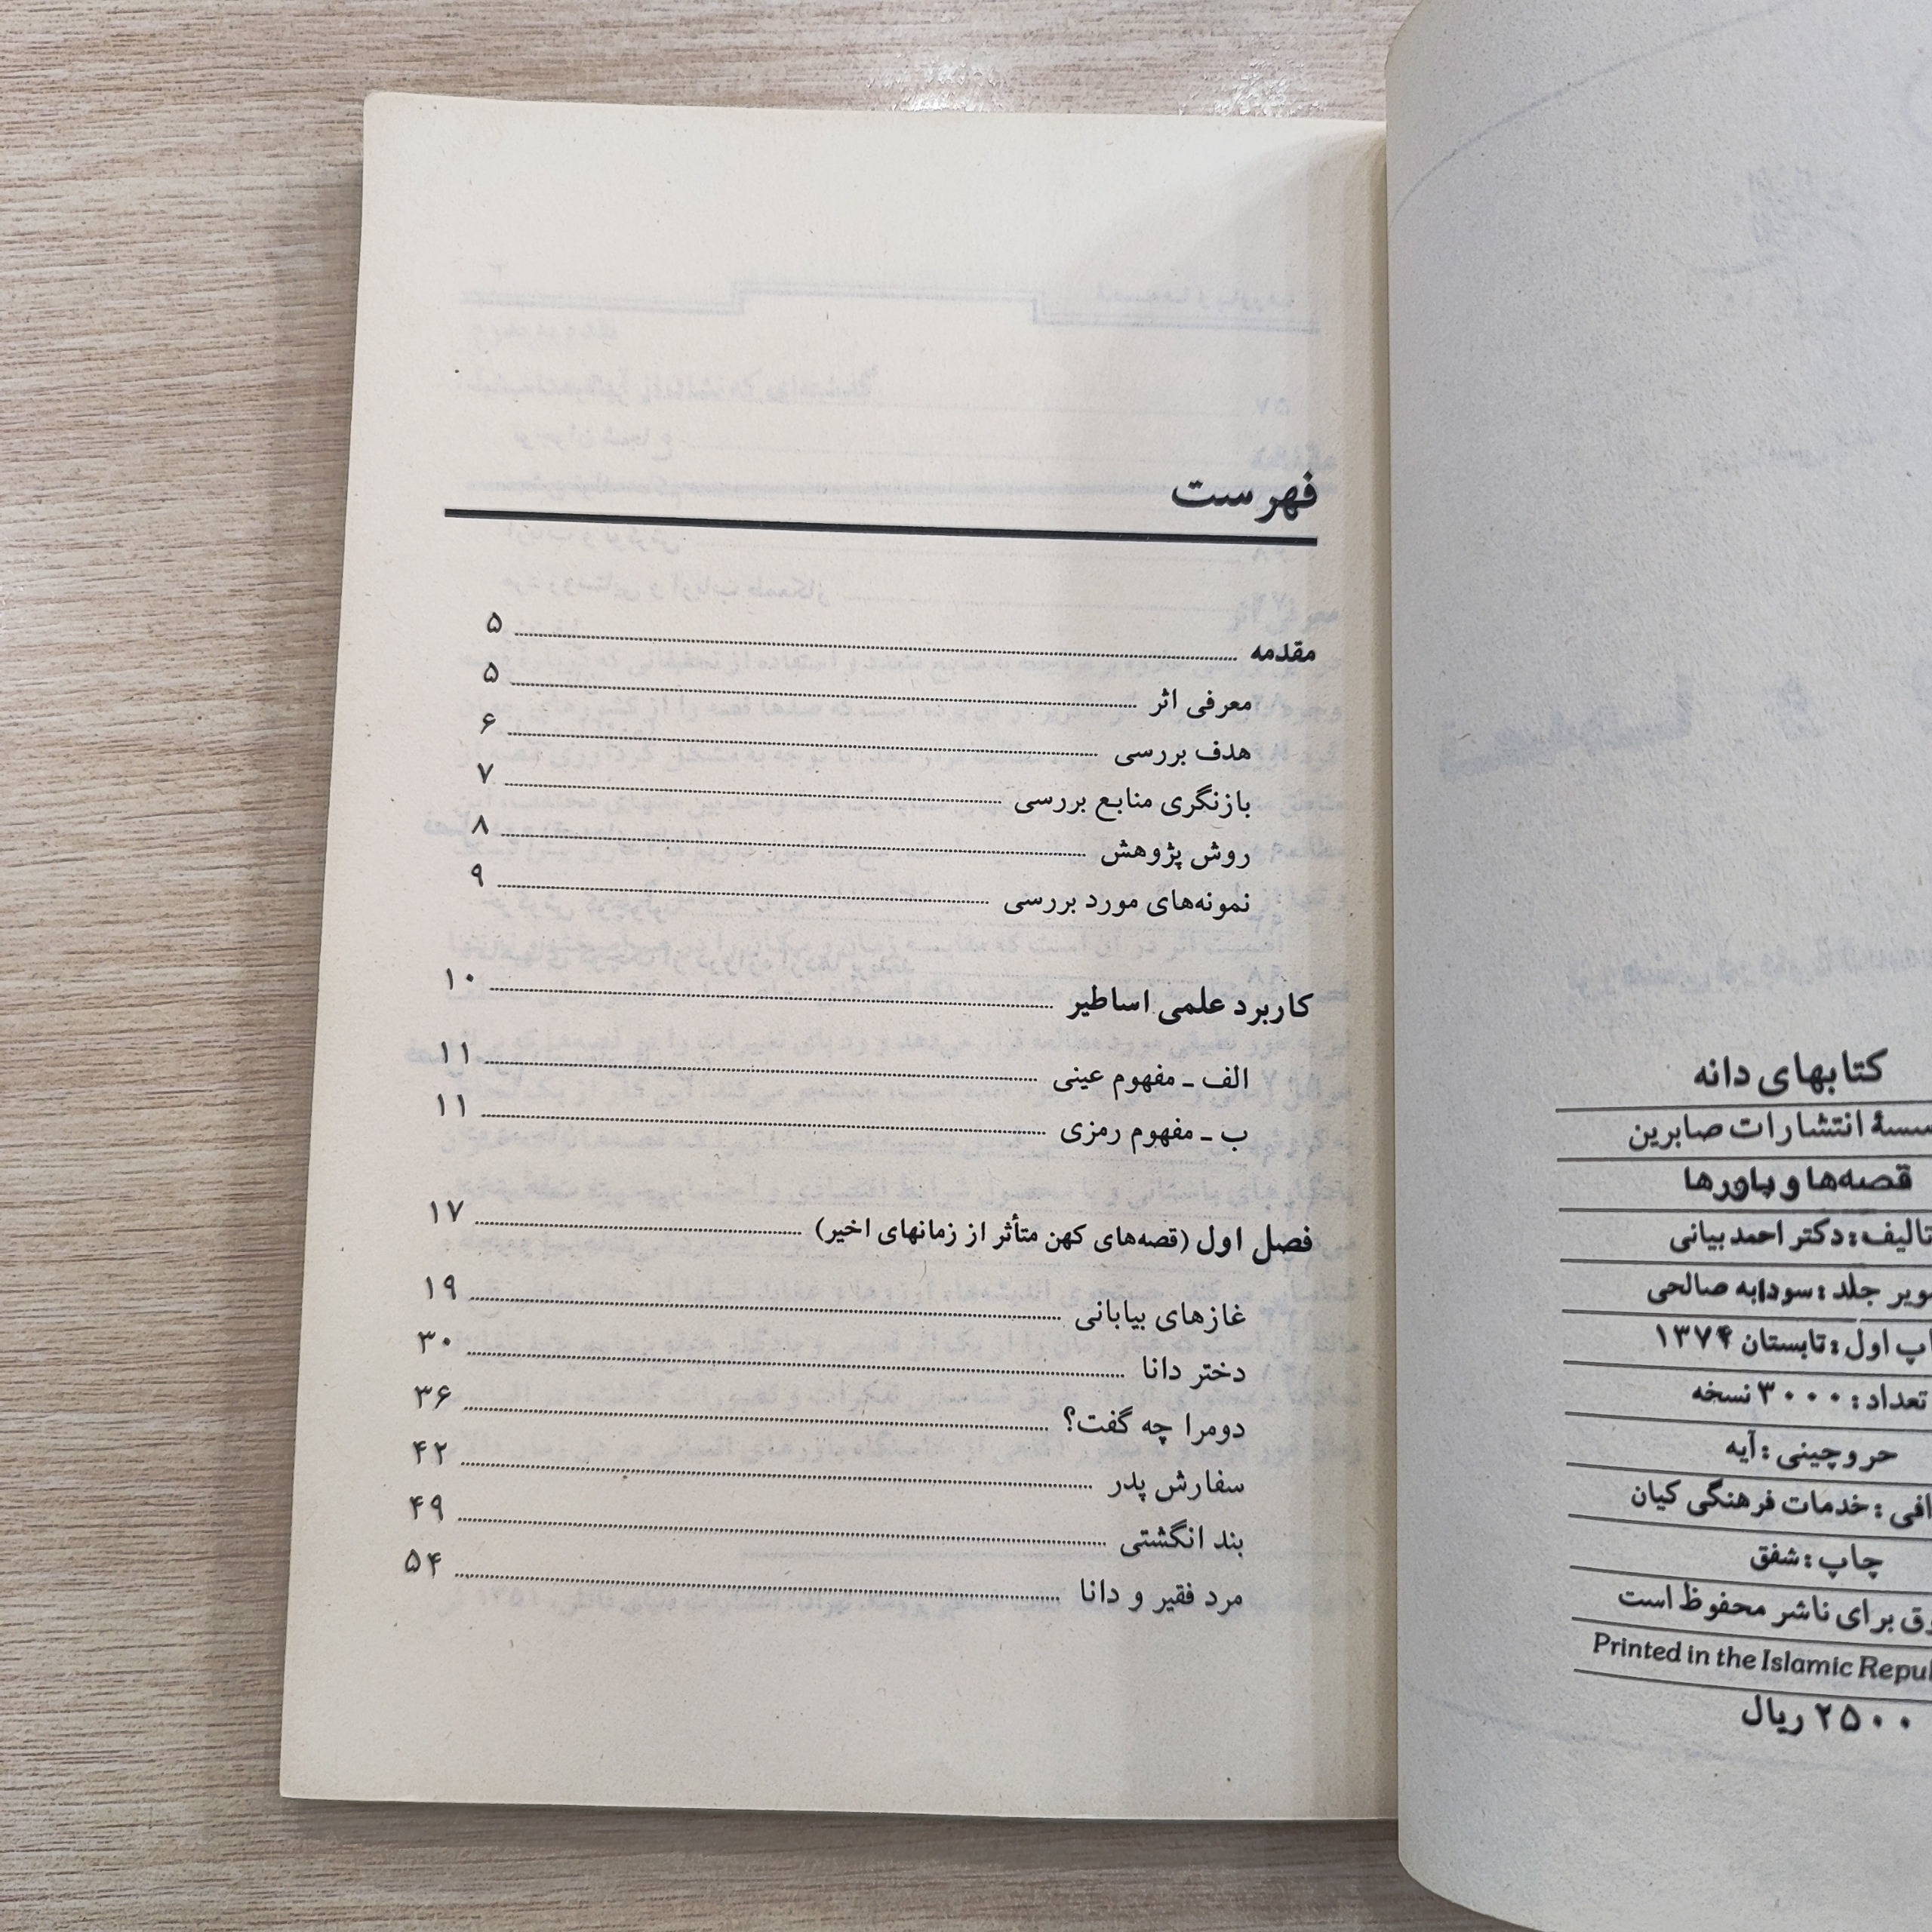 کتابهای دانه
انتشارات صابرین
قصه‌ها و باورها
تالیف: دکتر احمد بیانی
جلد: سودابه صالحی
اول: تابستان ۱۳۷۴
تعداد: ۳۰۰۰ نسخه
حروچینی: آیه
خدمات فرهنگی کیان
چاپ: شفق
برای ناشر محفوظ است
Printed in the Islamic
۲۵۰۰ ریال
فهرست
مقدمه ۵
معرفی اثر ۵
هدف بررسی ۶
بازنگری منابع بررسی ۷
روش پژوهش ۸
نمونه‌های مورد بررسی ۹
کاربرد علمی اساطیر ۱۰
الف ـ مفهوم عینی ۱۱
ب ـ مفهوم رمزی ۱۱
فصل اول (قصه‌های کهن متأثر از زمانهای اخیر) ۱۷
غازهای بیابانی ۱۹
دختر دانا ۳۰
دومرا چه گفت؟ ۳۶
سفارش پدر ۴۲
بند انگشتی ۴۹
مرد فقیر و دانا ۵۴